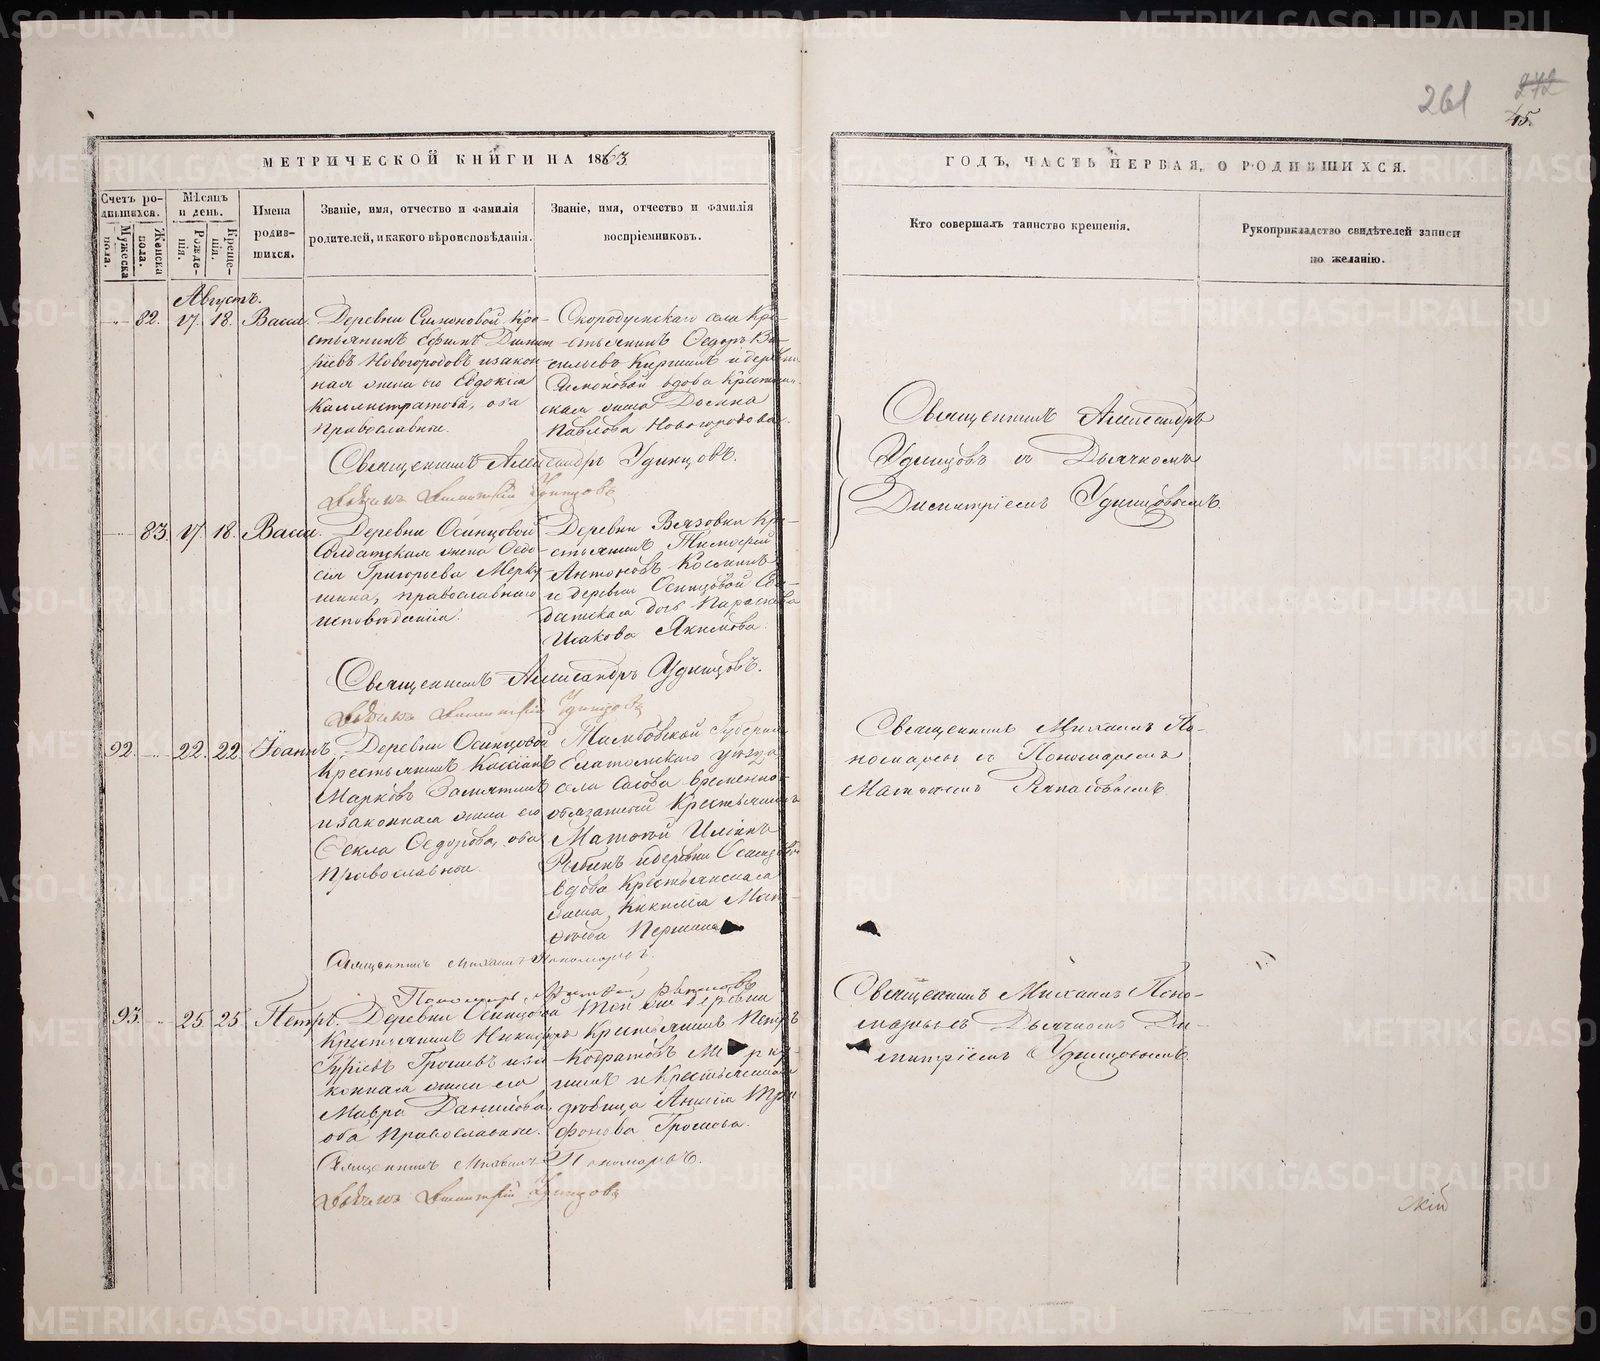 261
272
45.
МЕТРИЧЕСКОЙ КНИГИ НА 1863
ГОДЪ, ЧАСТЬ ПЕРВАЯ, О РОДИВШИХСЯ.
Счетъ родившихся.
Мужеска пола.
Женска пола.
Мѣсяцъ и день.
Рожденія.
Крещенія.
Имена родившихся.
Званіе, имя, отчество и фамилія
родителей, и какого вѣроисповѣданія.
Званіе, имя, отчество и фамилія
воспріемниковъ.
Кто совершалъ таинство крещенія.
Рукоприкладство свидѣтелей записи
по желанію.
Августъ.
82. 17. 18.
Деревни Симоновой Кре-
стьянинъ Ефимъ
Новогородовъ и закон
ная жена его Евдокія
Каллистратова, оба
Православные.
Скородумскаго села Кре-
стьянинъ Ѳедоръ Ва-
сильевъ и деревни
Симоновой вдова Крестьян
ская жена
Павлова Новогородова.
Священникъ Александръ Удинцовъ.
Дьячекъ Димитрій Удинцовъ
Священникъ Александръ
Удинцовъ съ Дьячкомъ
Димитріемъ Удинцовымъ.
83. 17. 18.
Деревни Осинцовой
Солдатская жена Ѳедо-
сія Григорьева Мерку
шина, православнаго
исповѣданія.
Деревни Вязовки Кре-
стьянинъ Тимоѳей
Антоновъ
и деревни Осинцовой Сол-
датская дочь Параскева
Исакова Якимова.
Священникъ Александръ Удинцовъ.
Дьячекъ Димитрій Удинцовъ
92. 22. 22. Іоаннъ.
Деревни Осинцовой
Крестьянинъ Кассіанъ
Марковъ Замятинъ
и законная жена его
Ѳекла Ѳедорова, оба
Православные.
Тамбовской Губерніи
Елатомскаго уѣзда
села Сасова временно-
обязанный Крестьянинъ
Матвѣй Илiинъ
и деревни Осинцовой
вдова Крестьянская
жена, Кикилія
Першина
Священникъ Михаилъ Пономаревъ.
Пономарь
Священникъ Михаилъ По-
номаревъ съ Пономаремъ
93. 25. 25. Петръ.
Деревни Осинцовой
Крестьянинъ Никифоръ
Гурьевъ и за
конная жена его
Мавра Данилова,
оба Православные.
Той же деревни
Крестьянинъ Петръ
Кодратовъ
и Крестьянская
дѣвица Анисія Три
фонова Громова.
Священникъ Михаилъ Пономаревъ.
Дьячекъ Димитрій Удинцовъ
Священникъ Михаилъ Поно-
маревъ съ Дьячкомъ Ди-
митріемъ Удинцовымъ
скій
METRIKI.GASO-URAL.RU